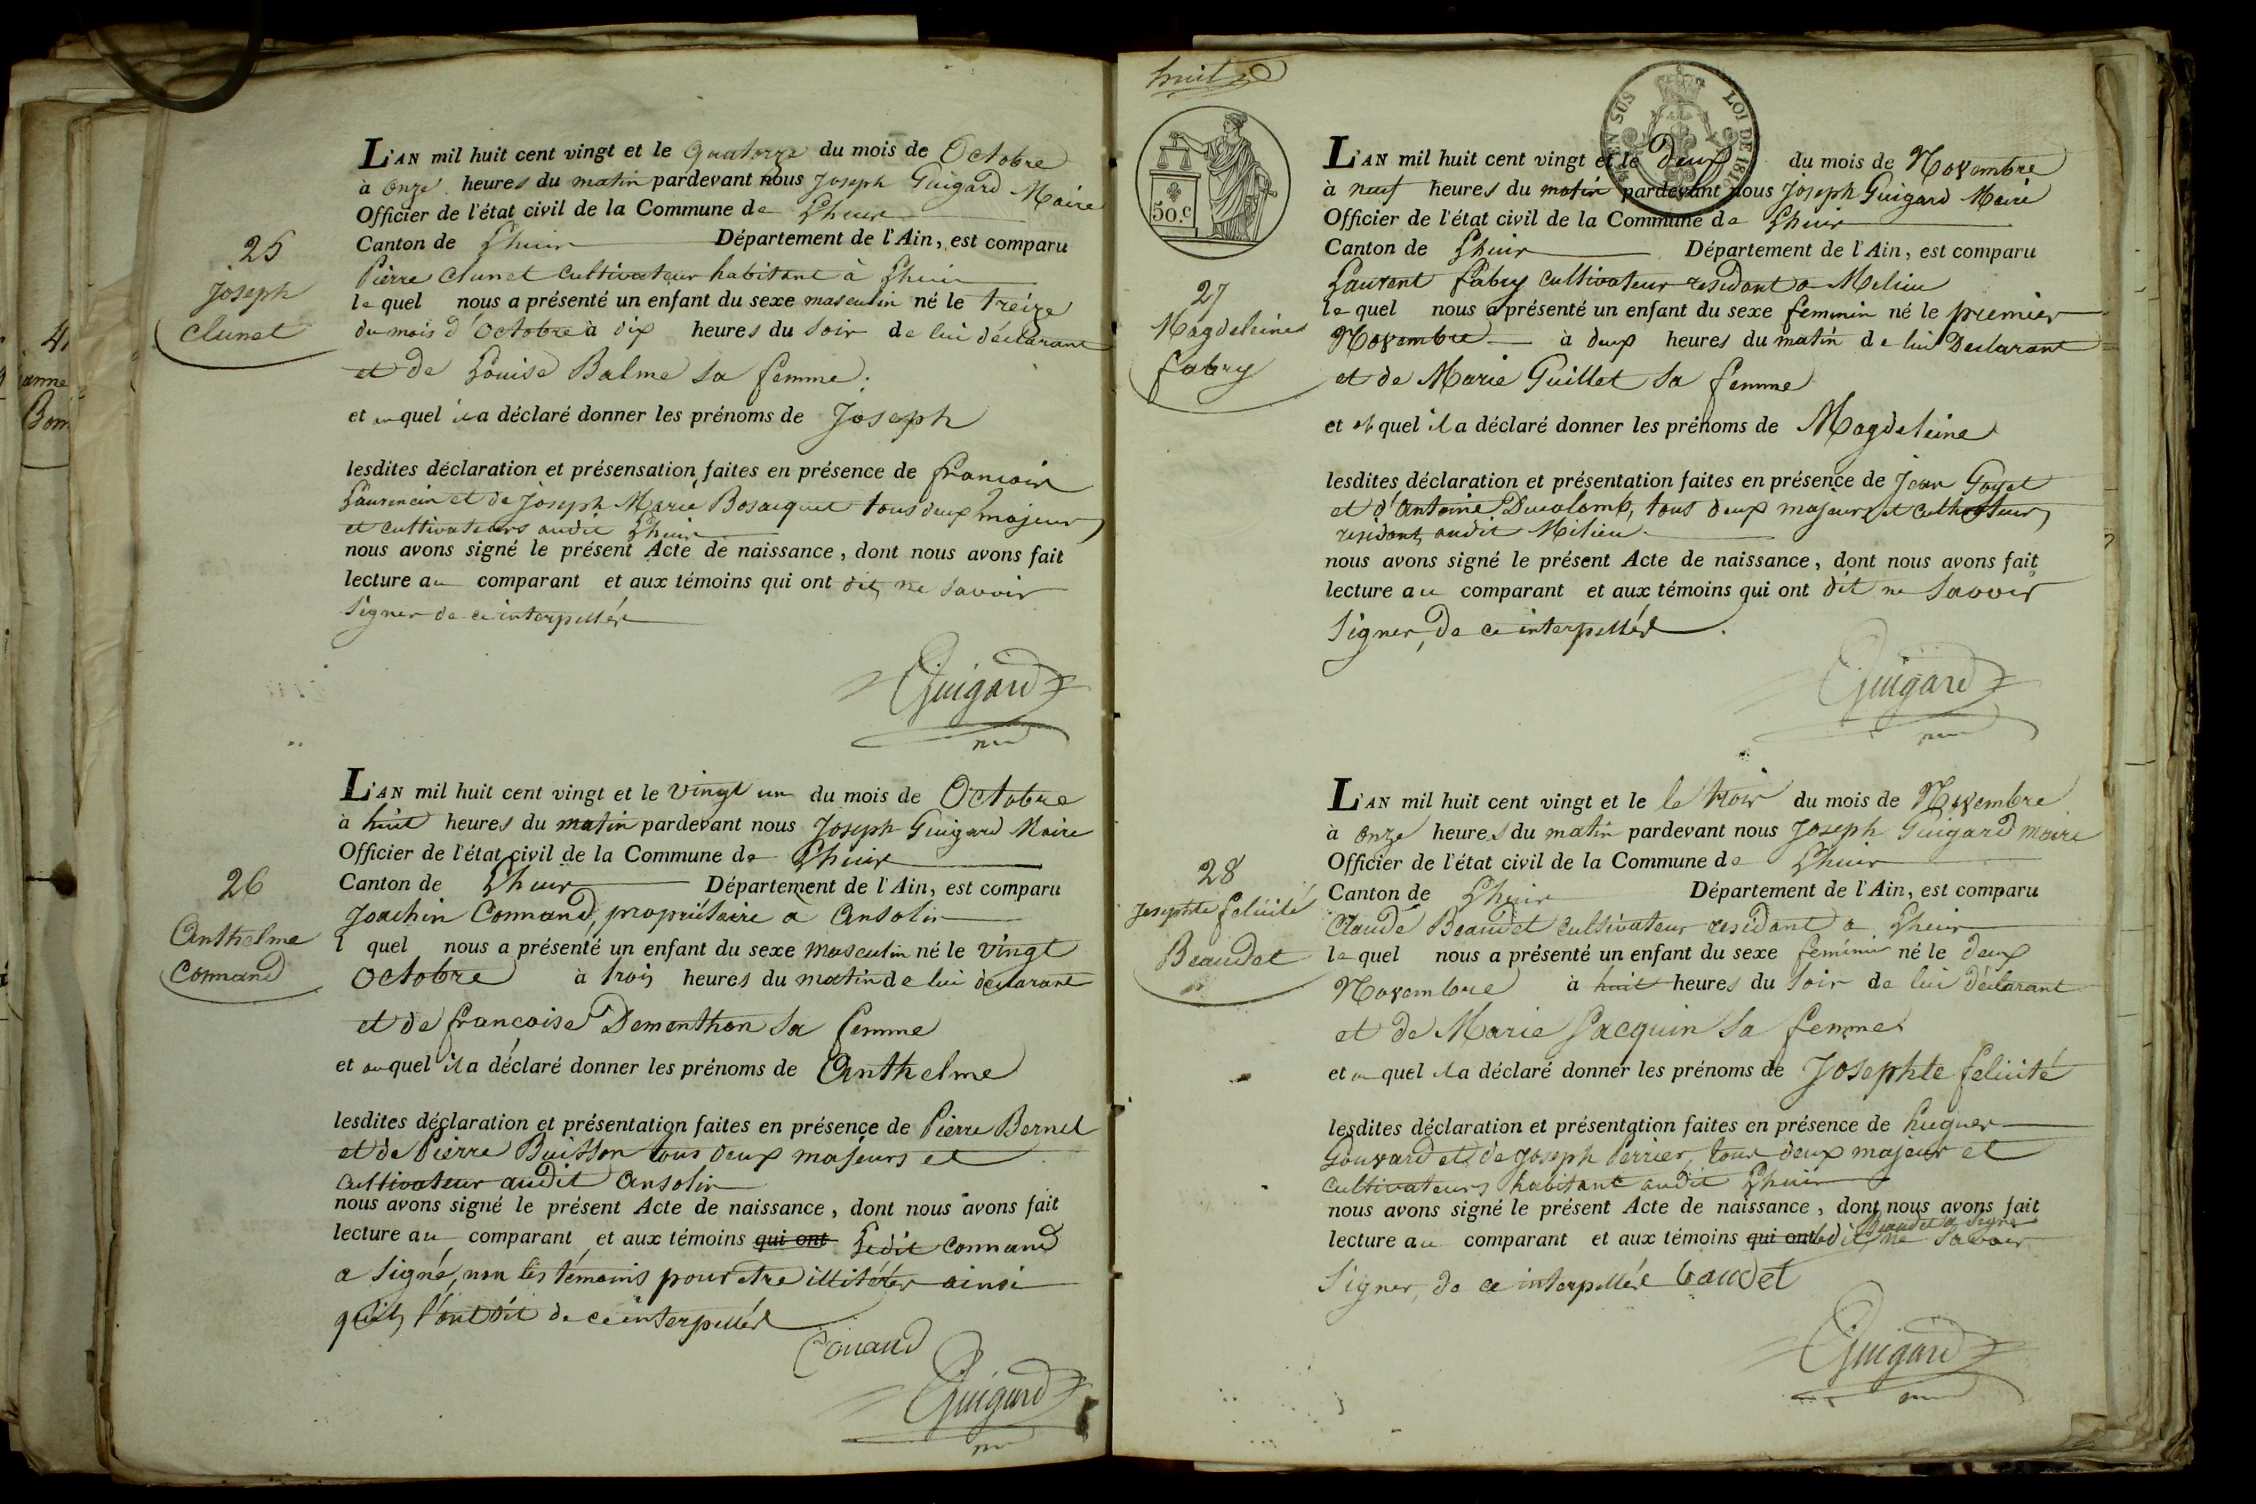 25
Joseph
Clunet
L'AN mil huit cent vingt et le quatorze du mois de Octobre
à onze heures du matin pardevant nous Joseph Guigard Maire
Officier de l'état civil de la Commune de Lhuis
Canton de Lhuis Département de l'Ain, est comparu
Pierre Clunet Cultivateur habitant à Lhuis
le quel nous a présenté un enfant du sexe masculin né le treize
du mois d'Octobre à dix heures du soir de lui déclarant
et de Louise Balme sa femme.
et auquel il a déclaré donner les prénoms de Joseph
lesdites déclaration et présensation faites en présence de francois
Laurencin et de Joseph Marie Bosacquet tous deux majeurs
et cultivateurs audit Lhuis
nous avons signé le présent Acte de naissance, dont nous avons fait
lecture au comparant et aux témoins qui ont dit ne savoir
signer de ce interpellés
Guigard
26
Anthelme
Connand
L'AN mil huit cent vingt et le vingt un du mois de Octobre
à huit heures du matin pardevant nous Joseph Guigard Maire
Officier de l'état civil de la Commune de Lhuis
Canton de Lhuis Département de l'Ain, est comparu
Joachin Connand, propriétaire a Ansolin
l quel nous a présenté un enfant du sexe masculin né le vingt
Octobre à trois heures du matin de lui déclarant
et de francoise Dementhon sa femme
et auquel il a déclaré donner les prénoms de Anthelme
lesdites déclaration et présentation faites en présence de Pierre Bernet
et de Pierre Buisson tous deux majeurs et
Cultivateur audit Ansolin
nous avons signé le présent Acte de naissance, dont nous avons fait
lecture au comparant et aux témoins qui ont Ledit Connand
a signé, non les témoins pour etre illitérés ainsi
qu'ils l'ont dit de ce interpellés
Conand
Guigard
huit
EN SUS LOI DE 181
50.c
27
Magdeleine
fabry
L'AN mil huit cent vingt et le deux du mois de Novembre
à neuf heures du matin pardevant nous Joseph Guigard Maire
Officier de l'état civil de la Commune de Lhuis
Canton de Lhuis Département de l'Ain, est comparu
Laurent fabry cultivateur residant a Milieu
le quel nous a présenté un enfant du sexe feminin né le premier
Novembre à deux heures du matin de lui Declarant
et de Marie Guillet sa femme
et auquel il a déclaré donner les prénoms de Magdeleine
lesdites déclaration et présentation faites en présence de Jean Goyet
et d'antoine Ducolomb, tous deux majeurs et cultivateurs
residants audit Milieu
nous avons signé le présent Acte de naissance, dont nous avons fait
lecture au comparant et aux témoins qui ont dit ne savoir
signer, de ce interpellés.
Guigard
28
Josephte felicité
Beaudet
L'AN mil huit cent vingt et le le trois du mois de Novembre
à onze heures du matin pardevant nous Joseph Guigard maire
Officier de l'état civil de la Commune de Lhuis
Canton de Lhuis Département de l'Ain, est comparu
Claude Beaudet cultivateur residant a Lhuis
le quel nous a présenté un enfant du sexe feminin né le deux
Novembre à huit heures du soir de lui déclarant
et de Marie Jacquin sa femme
et au quel il a déclaré donner les prénoms de Josephte felicité
lesdites déclaration et présentation faites en présence de hugues
Gouvard et de Joseph Perrier, tous deux majeur et
cultivateurs habitant audit Lhuis
nous avons signé le présent Acte de naissance, dont nous avons fait
Beaudet a signé
lecture au comparant et aux témoins qui ont dit ne savoir
signer, de ce interpellés baudet
Guigard